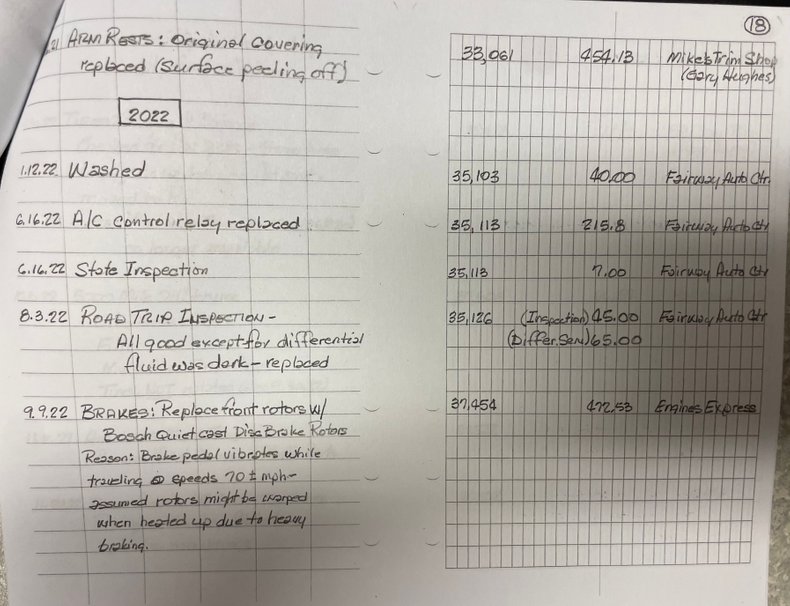 18
.21 ARM RESTS: Original Covering 33,061 454.13 Mike's Trim Shop
replaced (Surface peeling off) (Gary Hughes)
2022
1.12.22 Washed 35,103 40.00 Fairway Auto Ctr.
6.16.22 A/C Control relay replaced 35,113 215.8 Fairway Auto Ctr
6.16.22 State Inspection 35,113 7.00 Fairway Auto Ctr
8.3.22 ROAD TRIP INSPECTION - 35,126 (Inspection) 45.00 Fairway Auto Ctr
All good except for differential (Differ. Serv.) 65.00
fluid was dark - replaced
9.9.22 BRAKES: Replace front rotors w/ 37,454 472.53 Engines Express
Bosch Quiet cast Disc Brake Rotors
Reason: Brake pedal vibrates while
traveling @ speeds 70 ± mph -
assumed rotors might be warped
when heated up due to heavy
braking.